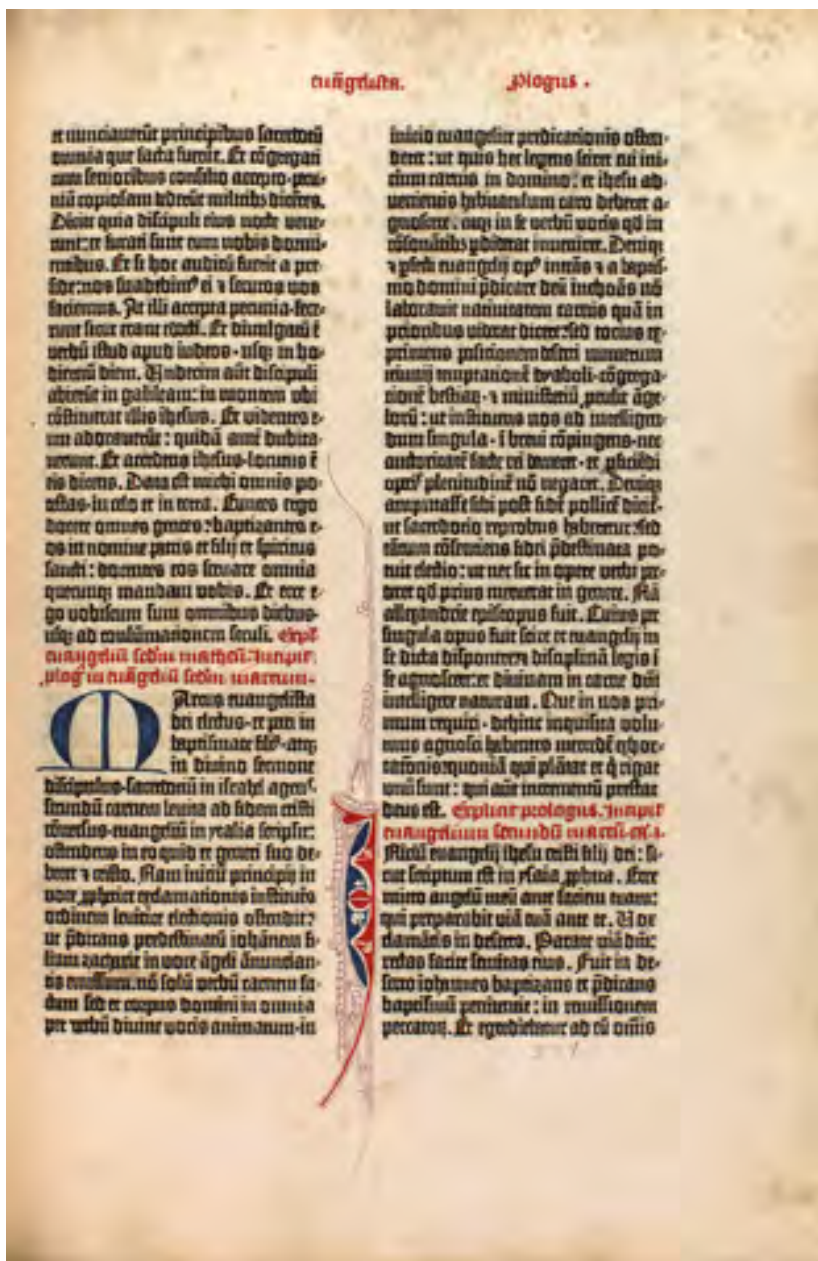 euãgelista. Plogus.
et nunciauerũt principibus sacerdotũ
omnia que facta fuerãt. Et cõgregati
cum senioribus consilio accepto · pecu-
niã copiosam dederũt militibʒ dicẽtes.
Dicite quia discipuli eius nocte vene-
runt: et furati sunt eum vobis dormi-
entibus. Et si hoc auditũ fuerit a pre-
side: nos suadebimꝰ ei ⁊ securos vos
faciemus. At illi accepta pecunia · fece-
runt sicut erant edocti. Et divulgatũ ẽ
verbũ istud apud iudeos · usqʒ in ho-
diernũ diem. Undecim aũt discipuli
abierũt in galileam: in montem ubi
cõstituerat illis ihesus. Et videntes e-
um adoraverũt: quidã autẽ dubita-
verunt. Et accedens ihesus · locutus ẽ
eis dicens. Data est michi omnis po-
testas · in celo et in terra. Euntes ergo
docete omnes gentes: baptizantes e-
os in nomine patris et filij et spiritus
sancti: docentes eos servare omnia
quecunqʒ mandavi vobis. Et ecce e-
go vobiscum sum omnibus diebus ·
usqʒ ad consũmationem seculi. Explĩt
euangeliũ scdm matheũ. Incipit
plogꝰ in euãgeliũ scdm marcum.
Marcus euangelista
dei electus · et petri in
baptismate filiꝰ · atqʒ
in divino sermone
discipulus · sacerdotiũ in israhel agens ·
secundũ carnem levita · ad fidem cristi
cõversus · euangeliũ in ytalia scripsit:
ostendens in eo quid et generi suo de-
beret ⁊ cristo. Nam iniciũ principij in
voce prophetice exclamationis instituẽs
ordinem levitice electionis ostendit:
ut p̃dicans predestinatũ iohãnem fi-
lium zacharie in voce ãgeli ãnunciantis
emissum: nõ solũ verbũ carnem fa-
ctum sed et corpus domini in omnia
per verbũ divine vocis animatum · in
inicio euangelice predicationis osten-
deret: ut quis hec legens sciret cui ini-
cium carnis in domino: et ihesu ad-
venientis habitaculum caro deberet a-
gnoscere. atqʒ in se verbũ vocis qd in
cõsonãtibʒ pdiderat inveniret. Deniqʒ
⁊ pfecti euangelij opꝰ intrãs ⁊ a baptis-
mo domini p̃dicare deũ inchoãs nõ
laboravit nativitatem carnis quã in
prioribus vicerat dicere: sed totius ex-
primens positionem deserti numerum
ieiunij temptationẽ dyaboli · cõgrega-
tionẽ bestiaʒ · ⁊ ministeriũ protulit ãge-
lorũ: ut instituens nos ad intelligen-
dum singula · ĩ brevi cõpingens · nec
auctoritatẽ facte rei demeret · et pficiẽdi
opis plenitudinẽ nõ negaret. Deniqʒ
amputasse sibi post fidẽ pollicẽ dicit̃ ·
ut sacerdotio reprobus haberetur: sed
tantum cõsentiens fidei p̃destinata po-
tuit electio: ut nec sic in opere verbi per-
deret qd prius meruerat in genere. Nã
allexandrie episcopus fuit. Cuius per
singula opus fuit scire et euangelij in
se dicta disponere ⁊ disciplinã legis ĩ
se agnoscere: et divinam in carne dñi
intelligere naturam. Que in nos pri-
mum requiri · dehinc inquisita volu-
mus agnosci habentes mercedẽ exhor-
tationis: quoniã qui plãtat et q̃ rigat
unũ sunt: qui aũt incrementũ prestat
deus est. Explicit prologus. Incipit
euangelium secundũ marcũ. ca. i.
INiciũ euangelij ihesu cristi filij dei: si-
cut scriptum est in ysaia propheta. Ecce
mitto angelũ meũ ante faciem tuam:
qui preparabit viã tuã ante te. Vox
clamãtis in deserto. Parate viã dñi:
rectas facite semitas eius. Fuit in de-
serto iohannes baptizans et p̃dicans
baptismũ penitentie: in remissionem
peccatoʒ. Et egrediebatur ad eũ omĩs